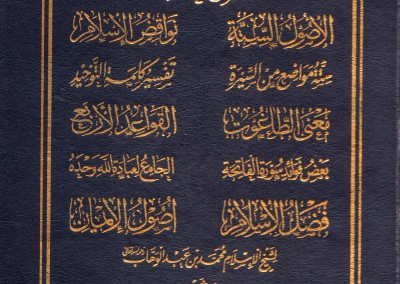 الأصول الستة نواقض الإسلام
ستة مواضع من السيرة تفسير كلمة التوحيد
معنى الطاغوت القواعد الأربع
بعض فوائد سورة الفاتحة الجامع لعبادة الله وحده
فضل الإسلام أصول الإيمان
لشيخ الإسلام محمد بن عبد الوهاب